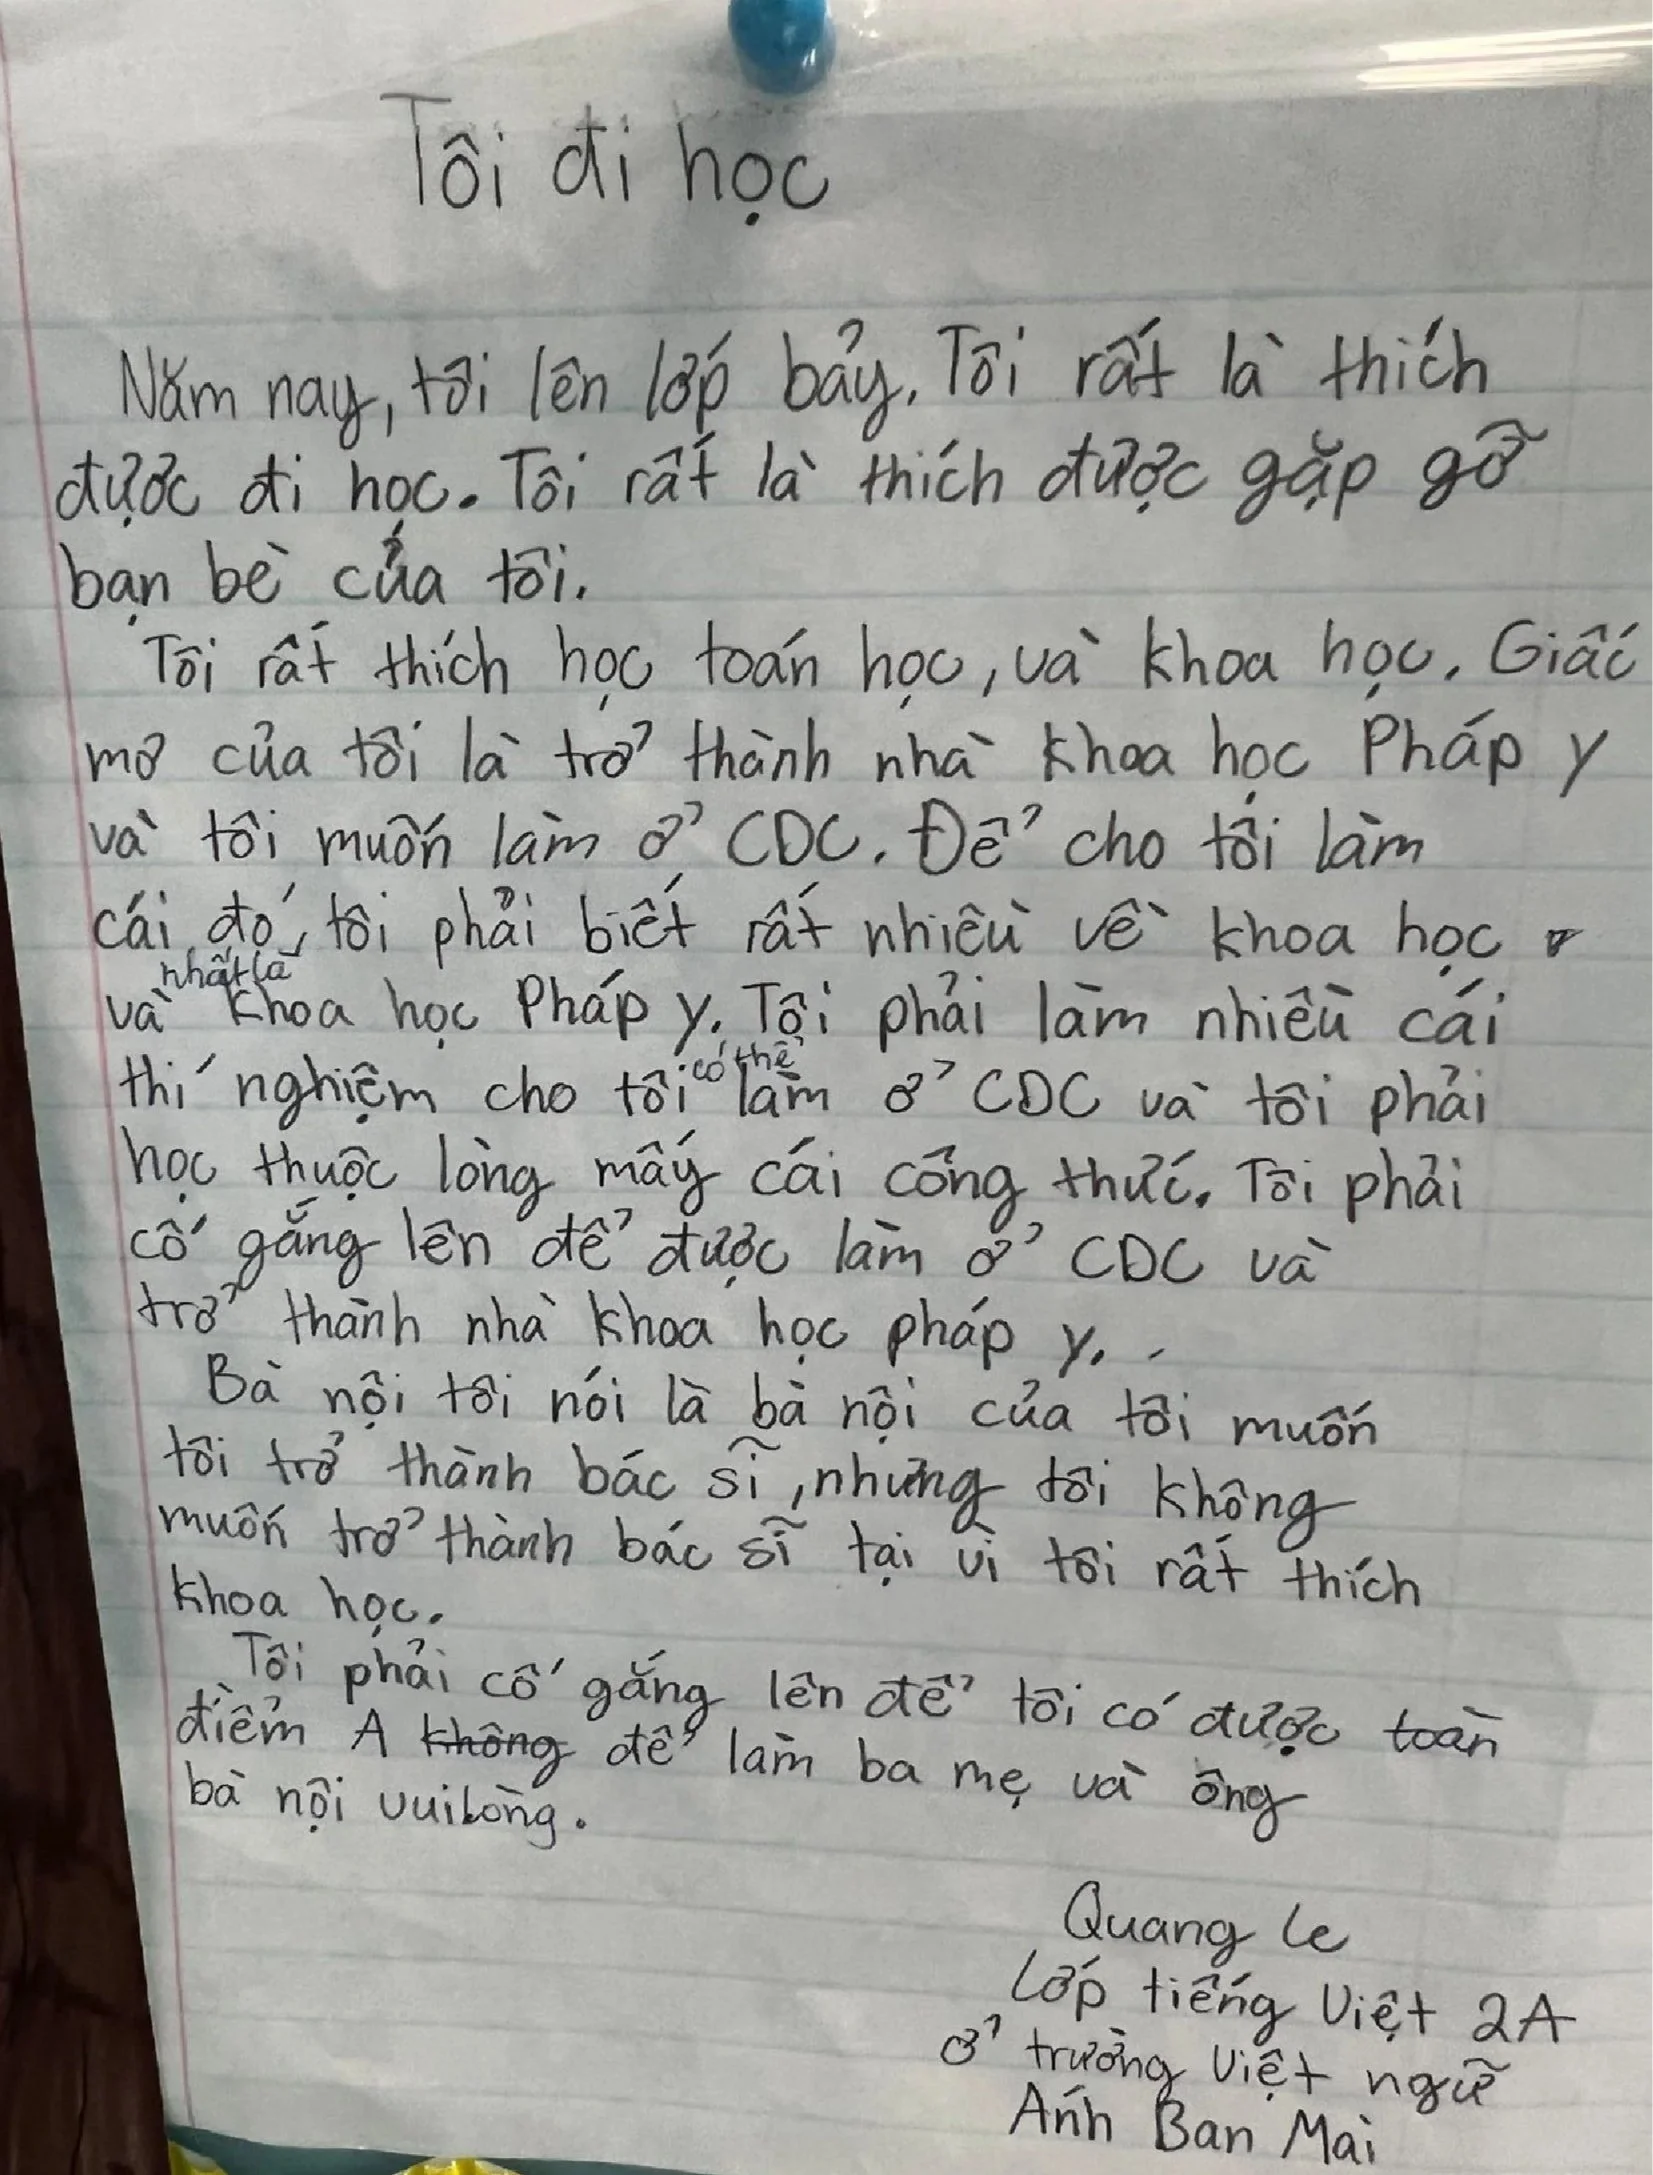 Tôi đi học
Năm nay, tôi lên lớp bảy. Tôi rất là thích
được đi học. Tôi rất là thích được gặp gỡ
bạn bè của tôi.
Tôi rất thích học toán học, và khoa học. Giấc
mơ của tôi là trở thành nhà khoa học Pháp y
và tôi muốn làm ở CDC. Để cho tôi làm
cái đó, tôi phải biết rất nhiều về khoa học
nhất là
và khoa học Pháp y. Tôi phải làm nhiều cái
có thể
thí nghiệm cho tôi làm ở CDC và tôi phải
học thuộc lòng mấy cái công thức. Tôi phải
cố gắng lên để được làm ở CDC và
trở thành nhà khoa học pháp y.
Bà nội tôi nói là bà nội của tôi muốn
tôi trở thành bác sĩ, nhưng tôi không
muốn trở thành bác sĩ tại vì tôi rất thích
khoa học.
Tôi phải cố gắng lên để tôi có được toàn
điểm A không để làm ba mẹ và ông
bà nội vui lòng.
Quang Le
Lớp tiếng Việt 2A
ở trường Việt ngữ
Ánh Ban Mai